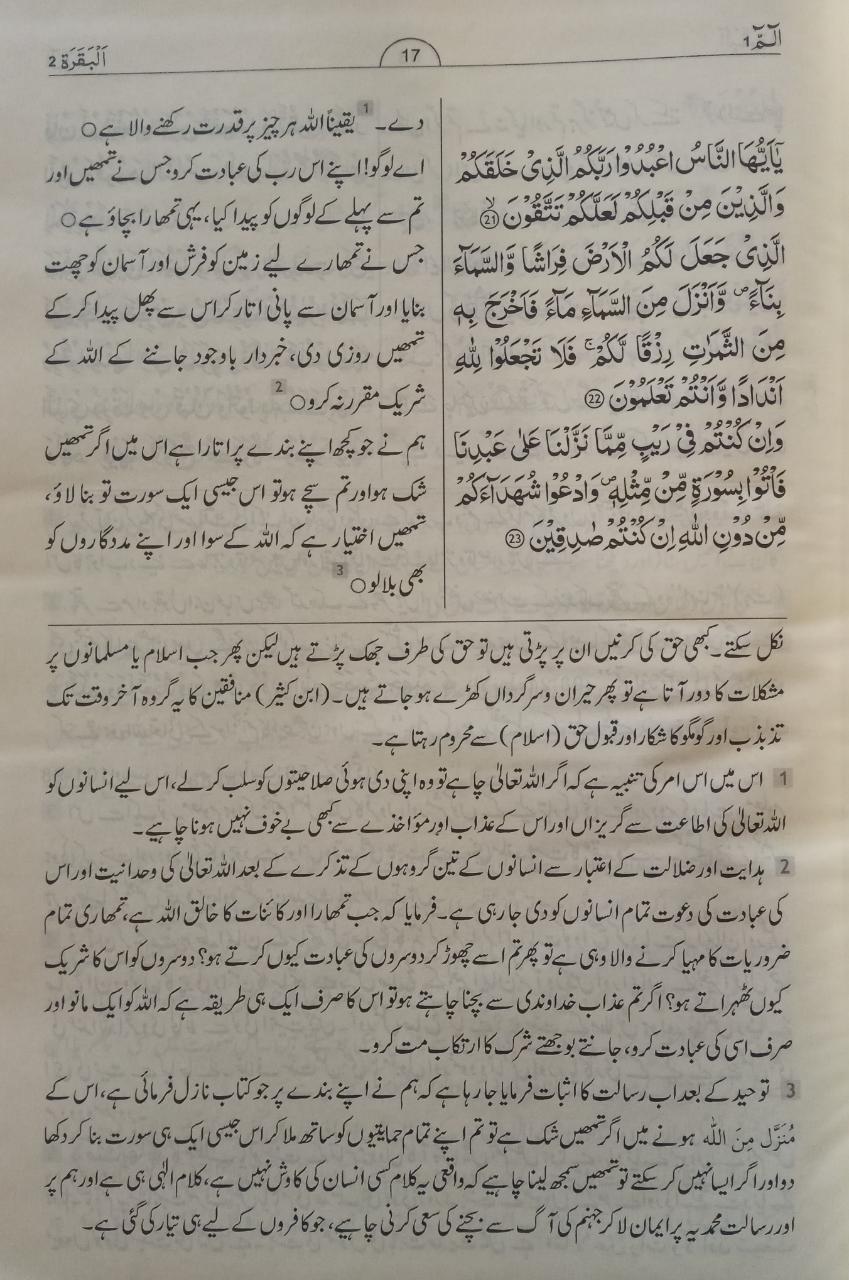 الٓمّٓ 1
17
اَلْبَقَرَة 2
يٰٓاَيُّهَا النَّاسُ اعْبُدُوْا رَبَّكُمُ الَّذِيْ خَلَقَكُمْ
وَالَّذِيْنَ مِنْ قَبْلِكُمْ لَعَلَّكُمْ تَتَّقُوْنَ ۙ 21
الَّذِيْ جَعَلَ لَكُمُ الْاَرْضَ فِرَاشًا وَّالسَّمَآءَ
بِنَآءً ۪ وَّاَنْزَلَ مِنَ السَّمَآءِ مَآءً فَاَخْرَجَ بِهٖ
مِنَ الثَّمَرٰتِ رِزْقًا لَّكُمْ ۚ فَلَا تَجْعَلُوْا لِلّٰهِ
اَنْدَادًا وَّاَنْتُمْ تَعْلَمُوْنَ 22
وَاِنْ كُنْتُمْ فِيْ رَيْبٍ مِّمَّا نَزَّلْنَا عَلٰى عَبْدِنَا
فَاْتُوْا بِسُوْرَةٍ مِّنْ مِّثْلِهٖ ۪ وَادْعُوْا شُهَدَآءَكُمْ
مِّنْ دُوْنِ اللّٰهِ اِنْ كُنْتُمْ صٰدِقِيْنَ 23
دے۔ 1 یقیناً اللہ ہر چیز پر قدرت رکھنے والا ہے ○
اے لوگو! اپنے اس رب کی عبادت کرو جس نے تمھیں اور
تم سے پہلے کے لوگوں کو پیدا کیا، یہی تمھارا بچاؤ ہے ○
جس نے تمھارے لیے زمین کو فرش اور آسمان کو چھت
بنایا اور آسمان سے پانی اتار کر اس سے پھل پیدا کر کے
تمھیں روزی دی، خبردار باوجود جاننے کے اللہ کے
شریک مقرر نہ کرو ○ 2
ہم نے جو کچھ اپنے بندے پر اتارا ہے اس میں اگر تمھیں
شک ہو اور تم سچے ہو تو اس جیسی ایک سورت تو بنا لاؤ،
تمھیں اختیار ہے کہ اللہ کے سوا اور اپنے مددگاروں کو
بھی بلا لو ○ 3
نکل سکتے۔ کبھی حق کی کرنیں ان پر پڑتی ہیں تو حق کی طرف جھک پڑتے ہیں لیکن پھر جب اسلام یا مسلمانوں پر
مشکلات کا دور آتا ہے تو پھر حیران و سرگرداں کھڑے ہو جاتے ہیں۔ (ابن کثیر) منافقین کا یہ گروہ آخر وقت تک
تذبذب اور گومگو کا شکار اور قبول حق (اسلام) سے محروم رہتا ہے۔
1 اس میں اس امر کی تنبیہ ہے کہ اگر اللہ تعالیٰ چاہے تو وہ اپنی دی ہوئی صلاحیتوں کو سلب کر لے، اس لیے انسانوں کو
اللہ تعالیٰ کی اطاعت سے گریزاں اور اس کے عذاب اور مؤاخذے سے کبھی بے خوف نہیں ہونا چاہیے۔
2 ہدایت اور ضلالت کے اعتبار سے انسانوں کے تین گروہوں کے تذکرے کے بعد اللہ تعالیٰ کی وحدانیت اور اس
کی عبادت کی دعوت تمام انسانوں کو دی جا رہی ہے۔ فرمایا کہ جب تمھارا اور کائنات کا خالق اللہ ہے، تمھاری تمام
ضروریات کا مہیا کرنے والا وہی ہے تو پھر تم اسے چھوڑ کر دوسروں کی عبادت کیوں کرتے ہو؟ دوسروں کو اس کا شریک
کیوں ٹھہراتے ہو؟ اگر تم عذاب خداوندی سے بچنا چاہتے ہو تو اس کا صرف ایک ہی طریقہ ہے کہ اللہ کو ایک مانو اور
صرف اسی کی عبادت کرو، جانتے بوجھتے شرک کا ارتکاب مت کرو۔
3 توحید کے بعد اب رسالت کا اثبات فرمایا جا رہا ہے کہ ہم نے اپنے بندے پر جو کتاب نازل فرمائی ہے، اس کے
مُنَزَّل مِنَ اللّٰه ہونے میں اگر تمھیں شک ہے تو تم اپنے تمام حمایتیوں کو ساتھ ملا کر اس جیسی ایک ہی سورت بنا کر دکھا
دو اور اگر ایسا نہیں کر سکتے تو تمھیں سمجھ لینا چاہیے کہ واقعی یہ کلام کسی انسان کی کاوش نہیں ہے، کلام الٰہی ہی ہے اور ہم پر
اور رسالت محمدیہ پر ایمان لا کر جہنم کی آگ سے بچنے کی سعی کرنی چاہیے، جو کافروں کے لیے ہی تیار کی گئی ہے۔